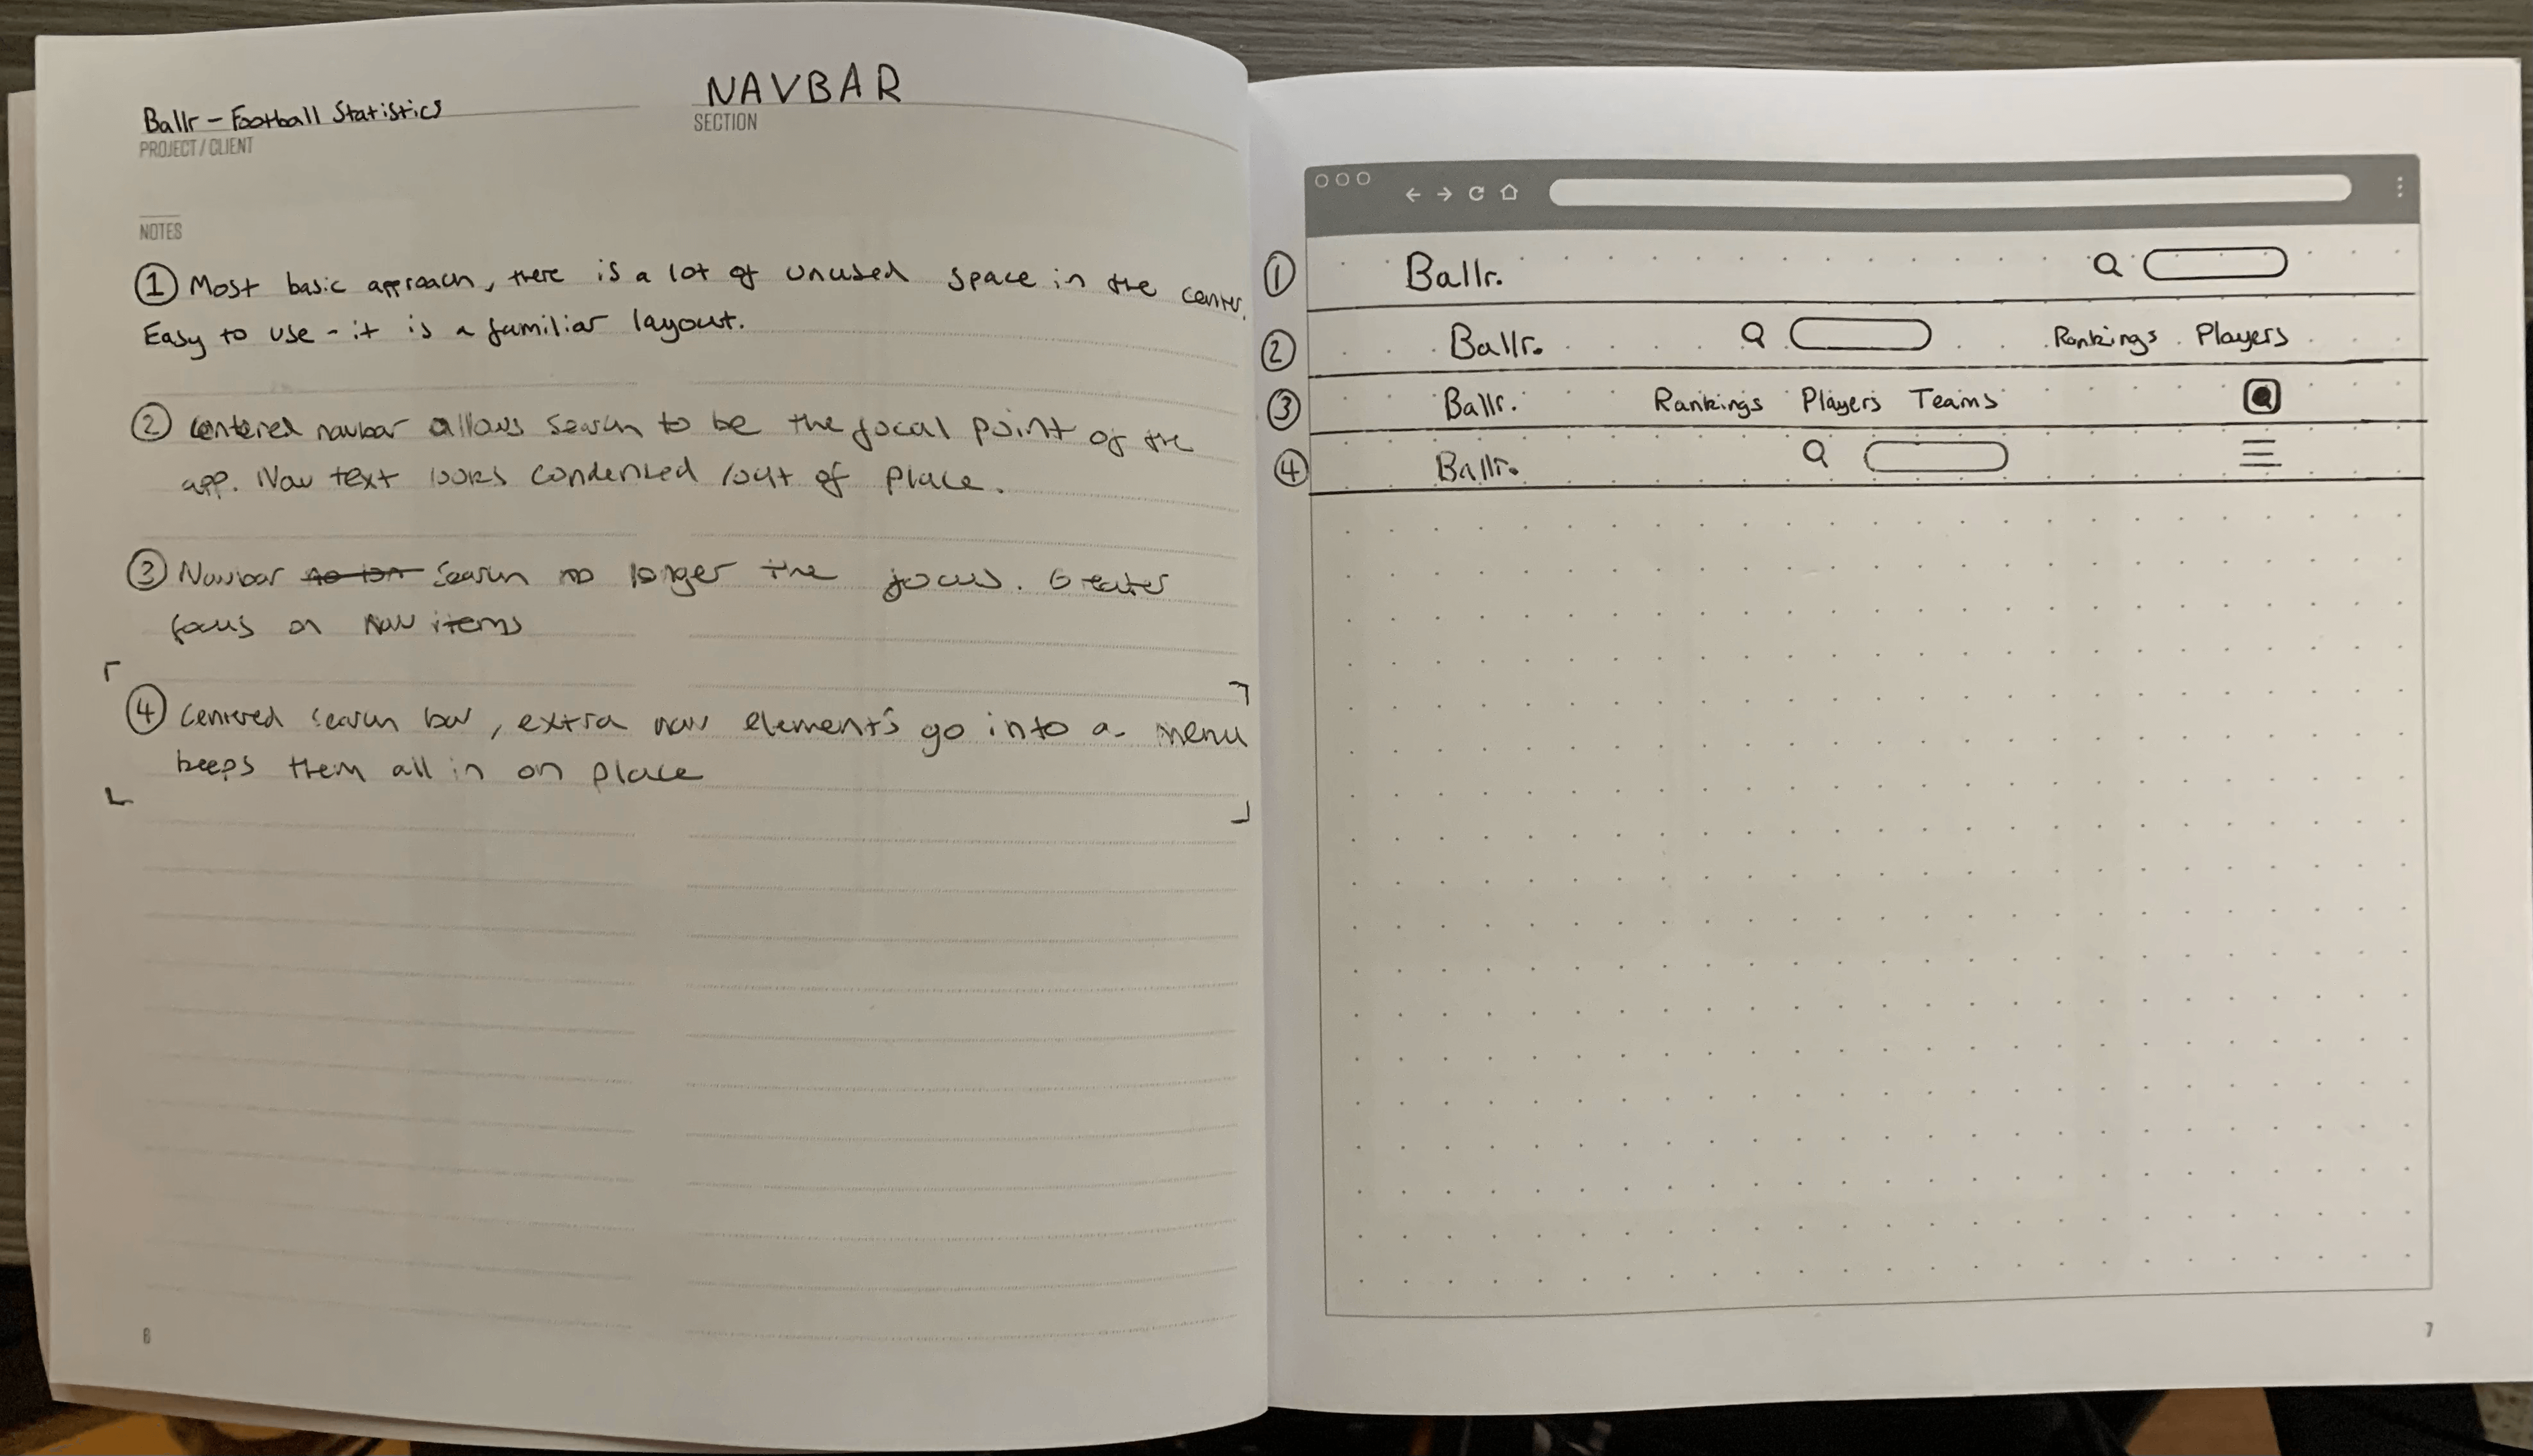 Ballr - Football Statistics
PROJECT / CLIENT
NAVBAR
SECTION
NOTES
① Most basic approach, there is a lot of unused space in the center.
Easy to use - it is a familiar layout.
② Centered navbar allows search to be the focal point of the
app. Nav text looks condensed / out of place.
③ Navbar search no longer the focus. Greater
focus on nav items
④ Centered search bar, extra nav elements go into a menu
keeps them all in on place
6
① Ballr.
② Ballr. Rankings Players
③ Ballr. Rankings Players Teams
④ Ballr.
7